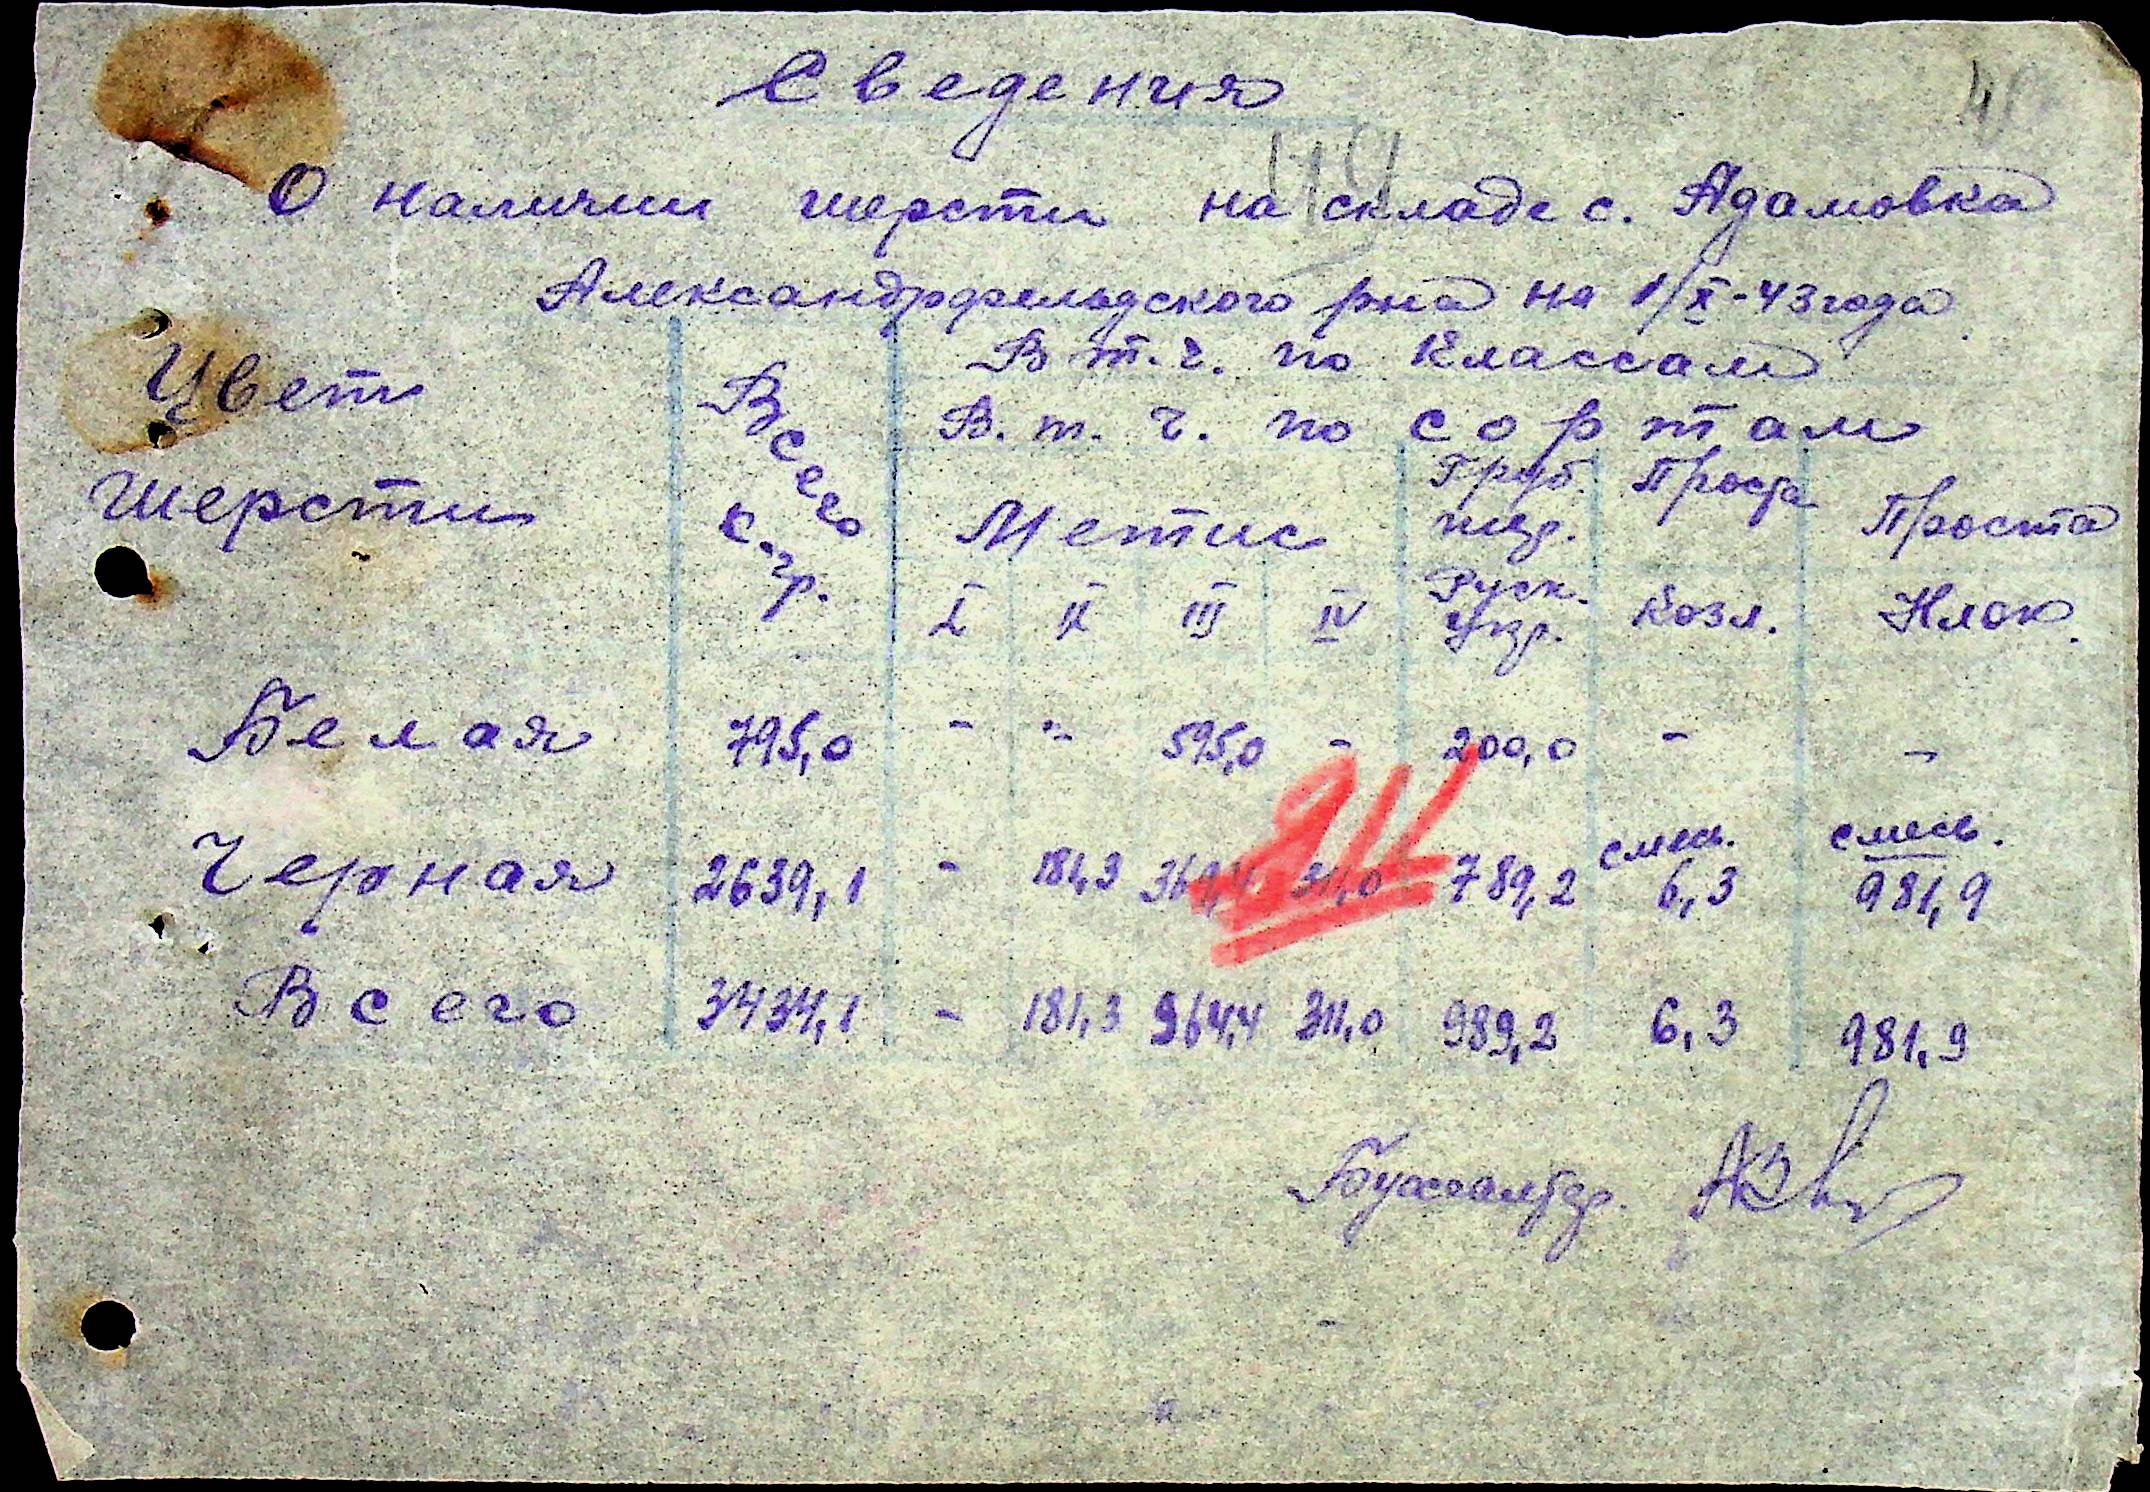 Сведения
О наличии шерсти на складе с. Адамовка
Александрфельдского рна на 1/X-43 года
Цвет шерсти Всего к.гр. В т.ч. по классам
В. т. ч. по сортам
Метис Груб. Проста Проста
I II III IV Руск. Козл. Клок.
Белая 795,0 - - 595,0 - 200,0 - -
смесь. смесь.
Черная 2639,1 - 181,3 369,4 311,0 789,2 6,3 981,9
Всего 3434,1 - 181,3 964,4 311,0 989,2 6,3 981,9